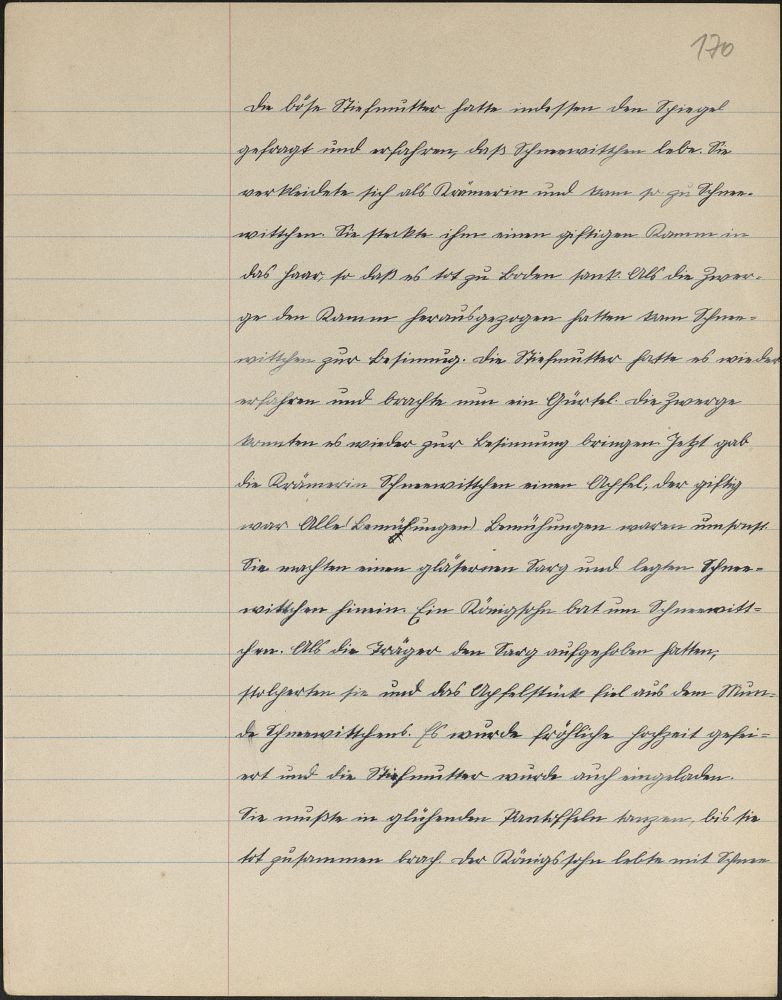 170
Die böse Stiefmutter hatte indessen den Spiegel
gefragt und erfahren, daß Schneewittchen lebe. Sie
verkleidete sich als Krämerin und kam so zu Schnee-
wittchen. Sie steckte ihm einen giftigen Kamm in
das Haar, so daß es tot zu Boden sank. Als die Zwer-
ge den Kamm herausgezogen hatten kam Schnee-
wittchen zur Besinnug. Die Stiefmutter hatte es wieder
erfahren und brachte nun ein Gürtel. Die Zwerge
konnten es wieder zur Besinnung bringen. Jetzt gab
die Krämerin Schneewittchen einen Apfel, der giftig
war. Alle (Bemühungen) Bemühungen waren umsonst.
Sie machten einen gläsernen Sarg und legten Schnee-
wittchen hinein. Ein Königsohn bat um Schneewitt-
chen. Als die Träger den Sarg aufgehoben hatten,
stolperten sie und das Apfelstück fiel aus dem Mun-
de Schneewittchens. Es wurde fröhliche Hochzeit gefei-
ert und die Stiefmutter wurde auch eingeladen.
Sie mußte in glühenden Pantoffeln tanzen, bis sie
tot zusammen brach. Der Königssohn lebte mit Schnee